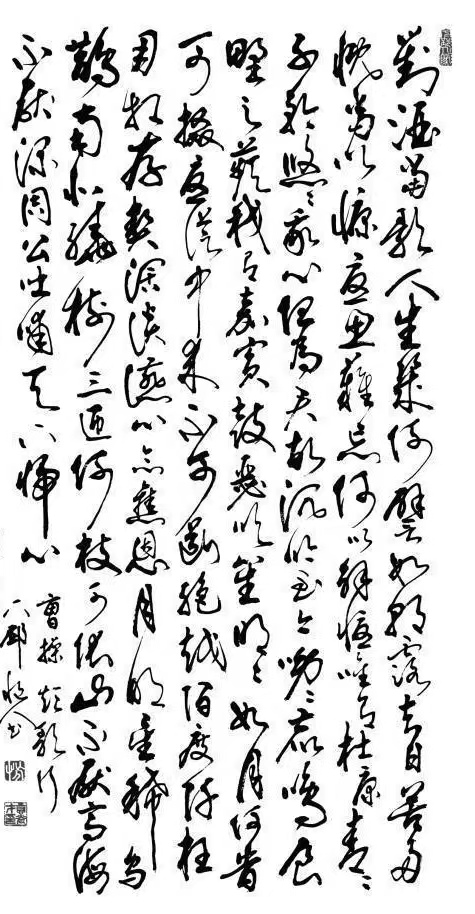 對酒當歌人生幾何譬如朝露去日苦多
慨當以慷憂思難忘何以解憂唯有杜康青々
子衿悠々我心但為君故沉吟至今呦々鹿鳴食
野之蘋我有嘉賓鼓瑟吹笙明々如月何時
可掇憂從中來不可斷絕越陌度阡枉
用相存契深談讌心念舊恩月明星稀烏
鵲南飛繞樹三匝何枝可依山不厭高海
不厭深周公吐哺天下歸心
曹操短歌行
書